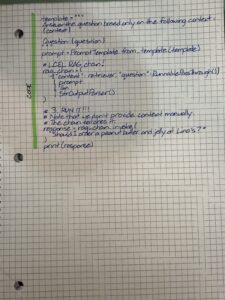 template = """
Answer the question based only on the following context:
{context}
Question: {question}
"""
prompt = PromptTemplate.from_template(template)
# LCEL RAG chain!
rag_chain = (
{"context": retriever, "question": RunnablePassthrough()}
| prompt
| llm
| StrOutputParser()
)
CODE
# 3. RUN IT!!!
# Note that we don't provide context manually.
# The chain fetches it.
response = rag_chain.invoke(
"Should I order a peanut butter and jelly at Lino's?"
)
print(response)